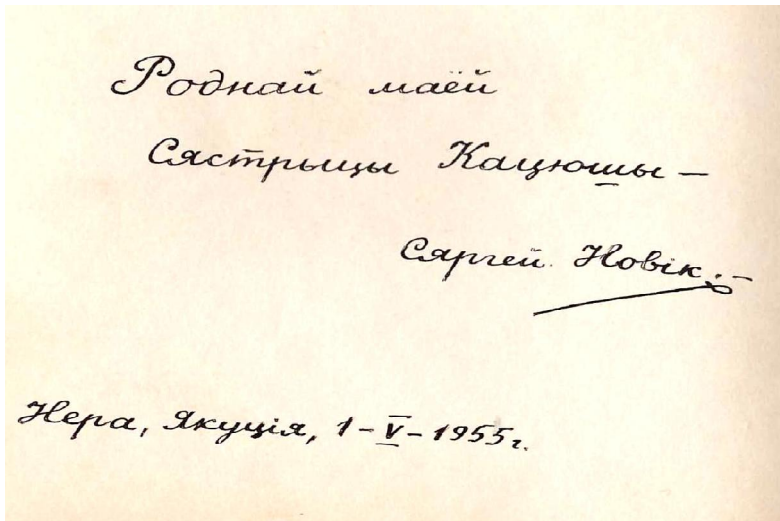 Роднай маёй
Сястрыцы Кацюшы –
Сяргей Новік. –
Нера, Якуція, 1 – V – 1955 г.